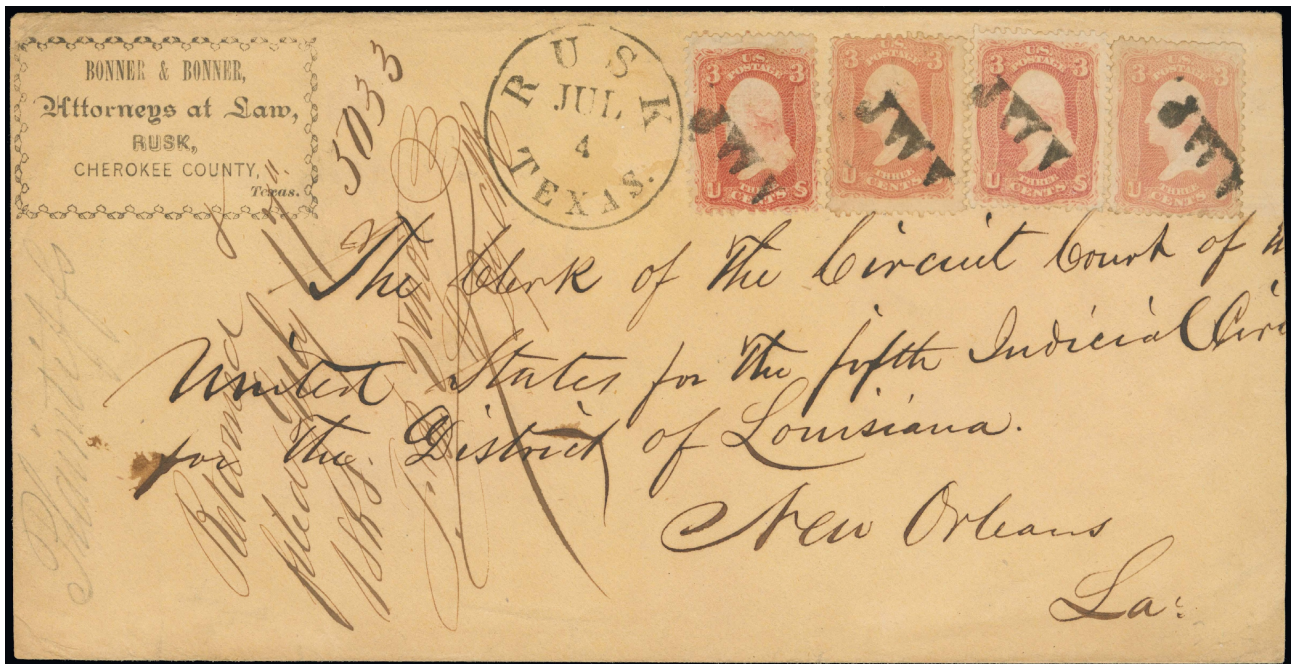 BONNER & BONNER,
Attorneys at Law,
RUSK,
CHEROKEE COUNTY,
Texas.
RUSK
JUL
4
TEXAS.
3 U.S. POSTAGE 3
U THREE CENTS S
JWA
3 U.S. POSTAGE 3
U THREE CENTS
JWA
3 U.S. POSTAGE 3
U THREE CENTS S
JWA
3 U.S. POSTAGE 3
U THREE CENTS
JWA
The Clerk of the Circuit Court of
United States for the fifth Judicial Circ
for the District of Louisiana.
New Orleans
La:
5033
Returned
filed
Plaintiffs